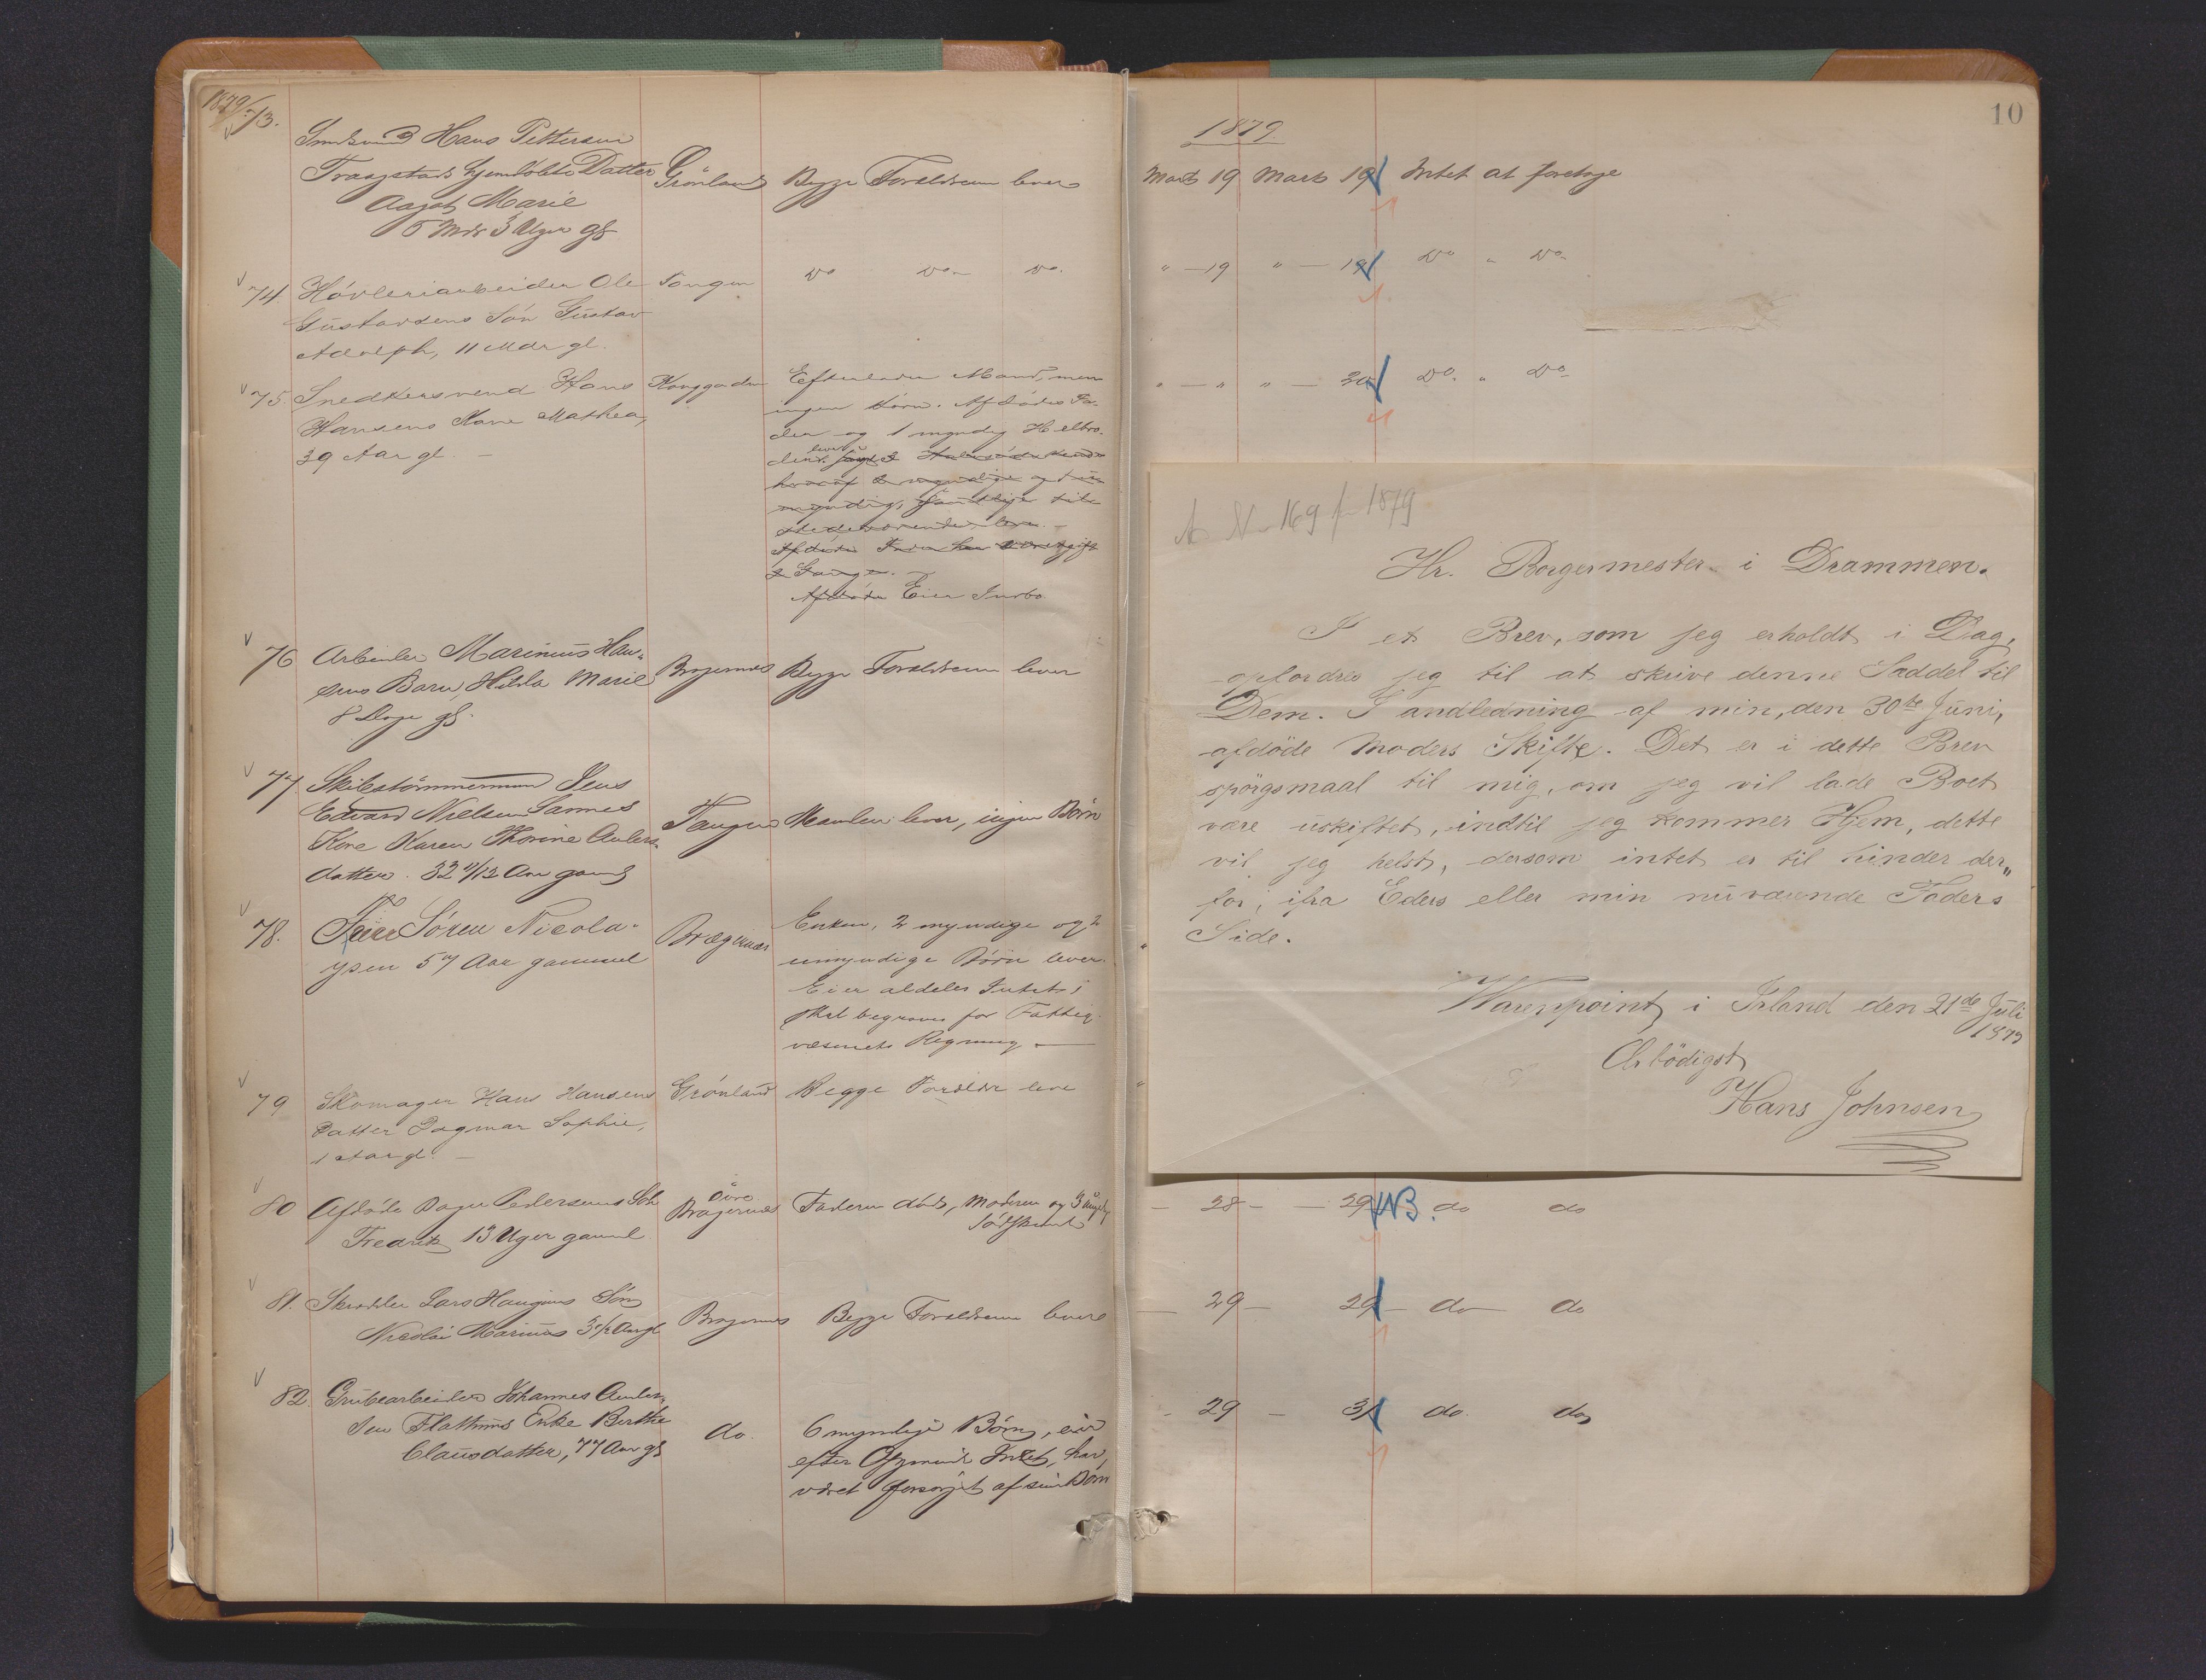 1879
73.
Hans Pettersen
Datter
Aagot Marie
5 Mdr 3 Uger gl
Grönland
Begge Forældrene lever
74. Høvleriarbeider Ole
Gustavsens Søn Gustav
Adolph, 11 Mdr gl.
Tangen
Do Do Do.
75. Snedkersvend Hans
Hansens Kone Mathea,
39 Aar gl. -
Konggaden
Efterlader Mand, men
ingen Børn. Afdødes Fa-
der og 1 myndig Helbro-
der lever
2 Gange.
Afdøde Eier Indbo
76 Arbeider Marinius Han-
sens Barn, Hilda Marie
8 Dage gl.
Bragernes
Begge Forældrene lever
77. Skibstømmermand Jens
Edvard Nielsen Sannes
Kone Karen Thorine Anders-
datter. 32 11/12 Aar gaml
Tangen
Manden lever, ingen Børn
78. Søren Nicola-
ysen 57 Aar gammel
Bragernæs
Enken, 2 myndige og 2
umyndige Børn lever.
Eier aldeles Intet;
skal begraves for Fattig-
væsenets Regning —
79 Skomager Hans Hansens
Datter Dagmar Sophie,
1 Aar gl. -
Grönland
Begge Forældre leve
80 Afdøde Pedersens Søn
Fredrik 13 Uger gammel
Øvre
Bragernæs
Faderen død, Moderen og 3
Sødskende
81. Skrædder Lars Haugens Søn
Nicolai Marinus 3 1/2 Aar gl
Bragernes
Begge Forældrene lever
82. Grubearbeider Johannes Ander-
sen Flathuus Enke Berthe
Clausdatter, 77 Aar gl
do.
6 myndige Børn, eier
efter Intet, har
været forsørget af sine Børn
10
1879
Marts 19 Marts 19 Intet at foretage
" — 19 " — 19 Do " Do
" — " " — 20 Do. " Do
A No 169 f 1879
Hr. Borgermester i Drammen.
I et Brev, som jeg erholdt i Dag,
opfordres jeg til at skrive denne Saddel til
Dem. I andledning af min, den 30te Juni,
afdöde Moders Skifte. Det er i dette Brev
spörgsmaal til mig, om jeg vil lade Boet
være uskiftet, indtil jeg kommer Hjem, dette
vil jeg helst, dersom intet er til hinder der„
for, ifra Eders eller min nuværende Faders
Side.
Warenpoint i Irland den 21de Juli
1879
Ærbödigst
Hans Johnsen
— 28 — — 29 NB. do do
— 29 — 29 — do — do
- 29 — 31 do. do